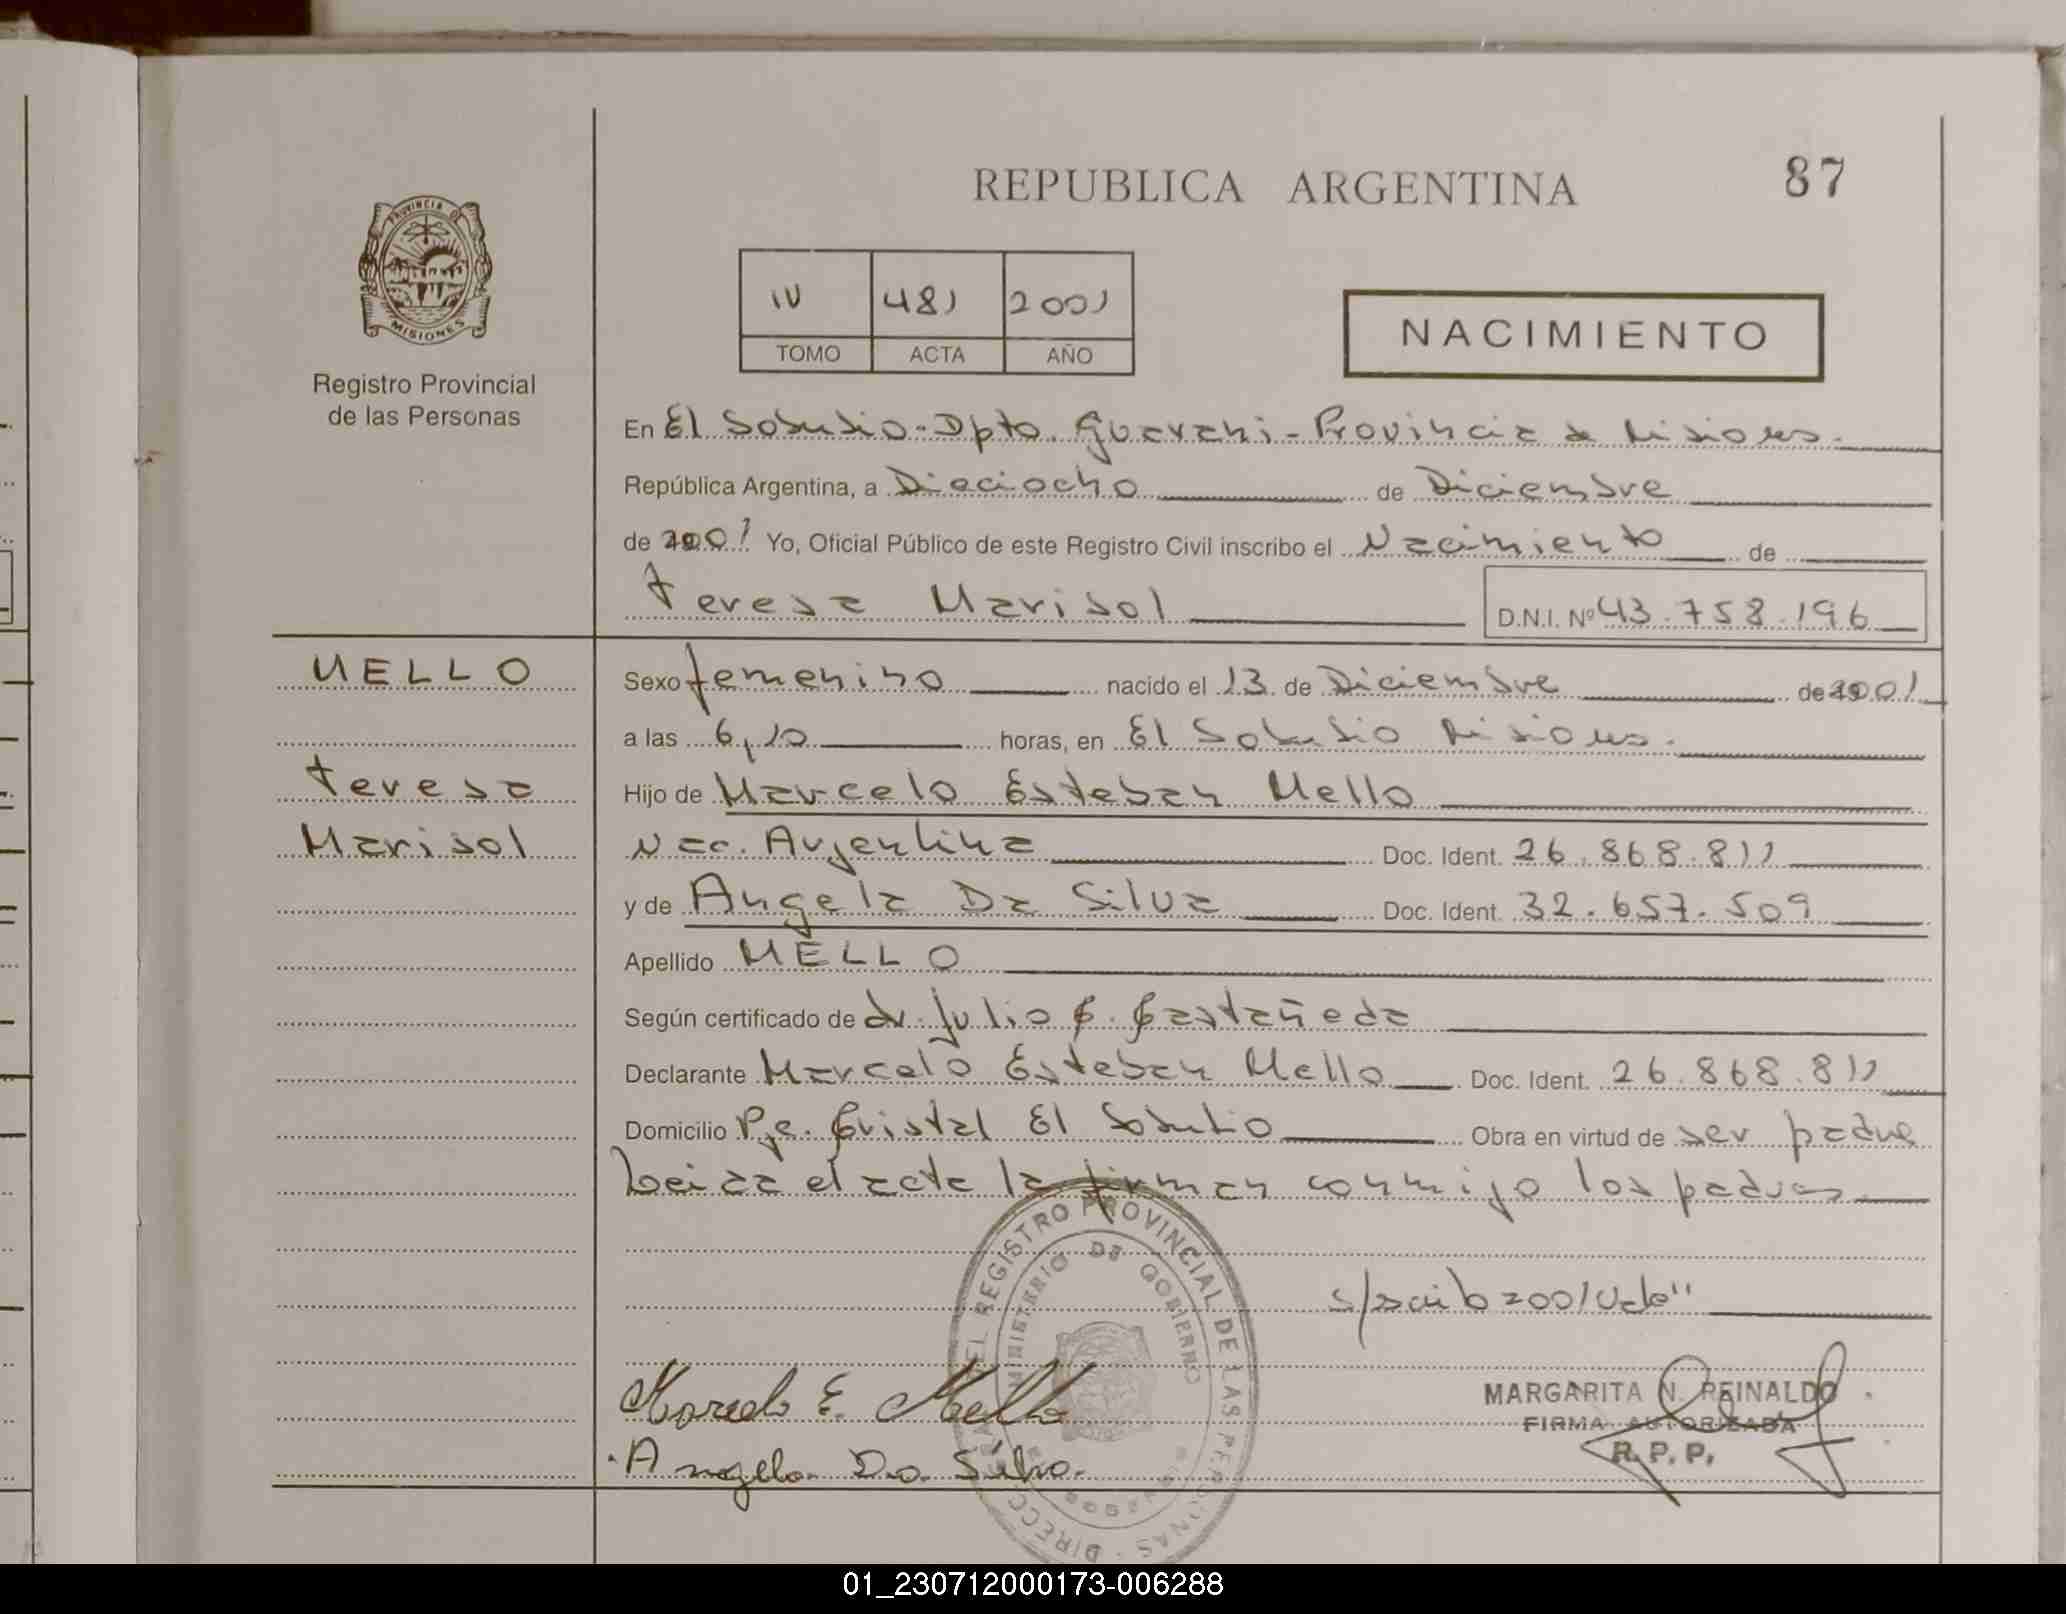 REPUBLICA ARGENTINA
87
PROVINCIA DE
MISIONES
Registro Provincial
de las Personas
IV 481 2001
TOMO ACTA AÑO
NACIMIENTO
En El Soberbio - Dpto. Guarani - Provincia de Misiones.
República Argentina, a Dieciocho de Diciembre
de 2001 Yo, Oficial Público de este Registro Civil inscribo el Nacimiento de
Teresa Marisol
D.N.I. Nº 43.758.196
MELLO
Teresa
Marisol
Sexo femenino nacido el 13 de Diciembre de 2001
a las 6,10 horas, en El Soberbio Misiones.
Hijo de Marcelo Esteban Mello
Nac. Argentina Doc. Ident. 26.868.811
y de Angela Da Silva Doc. Ident. 32.657.509
Apellido MELLO
Según certificado de dr. Julio C. Castañeda
Declarante Marcelo Esteban Mello Doc. Ident. 26.868.811
Domicilio Pje. Cristal El Soberbio Obra en virtud de ser padre
Leida el acta la firman conmigo los padres.
2001
Marcelo E. Mello
Angela Da Silva.
MARGARITA N. REINALDO
FIRMA AUTORIZADA
R.P.P.
REGISTRO PROVINCIAL DE LAS PERSONAS
MINISTERIO DE GOBIERNO
01_230712000173-006288